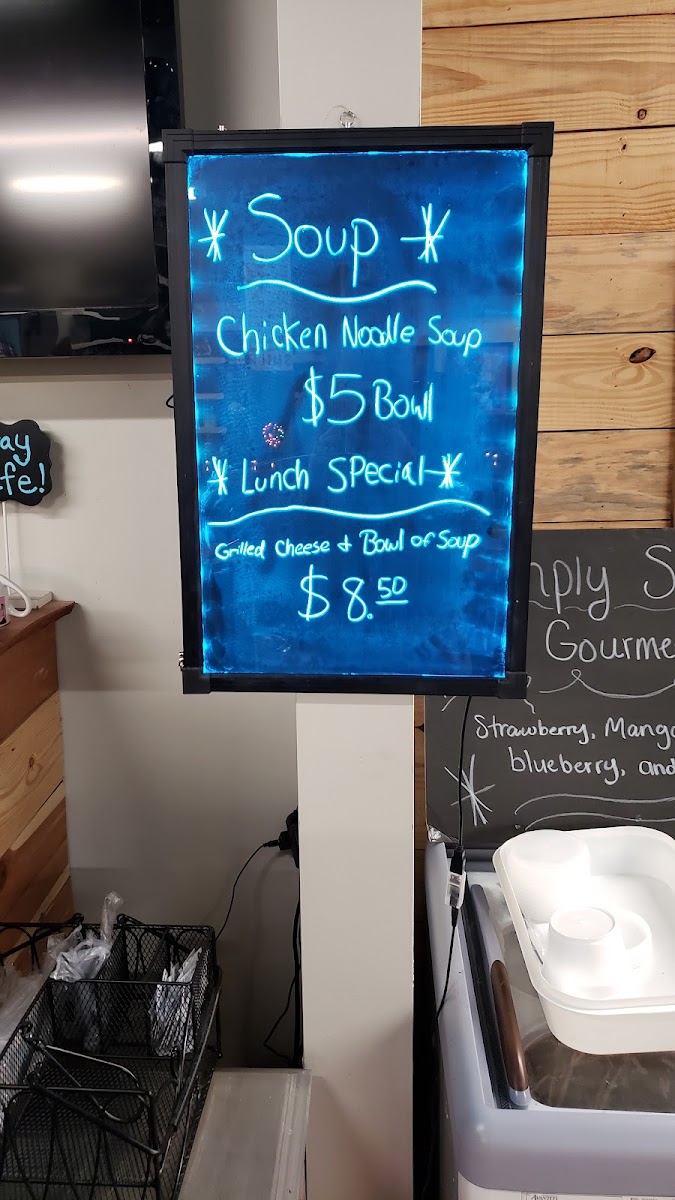 * Soup *
Chicken Noodle Soup
$5 Bowl
*Lunch Special*
Grilled Cheese + Bowl of Soup
$8.50
ay
fe!
mply S
Gourme
Strawberry, Mango
blueberry, and